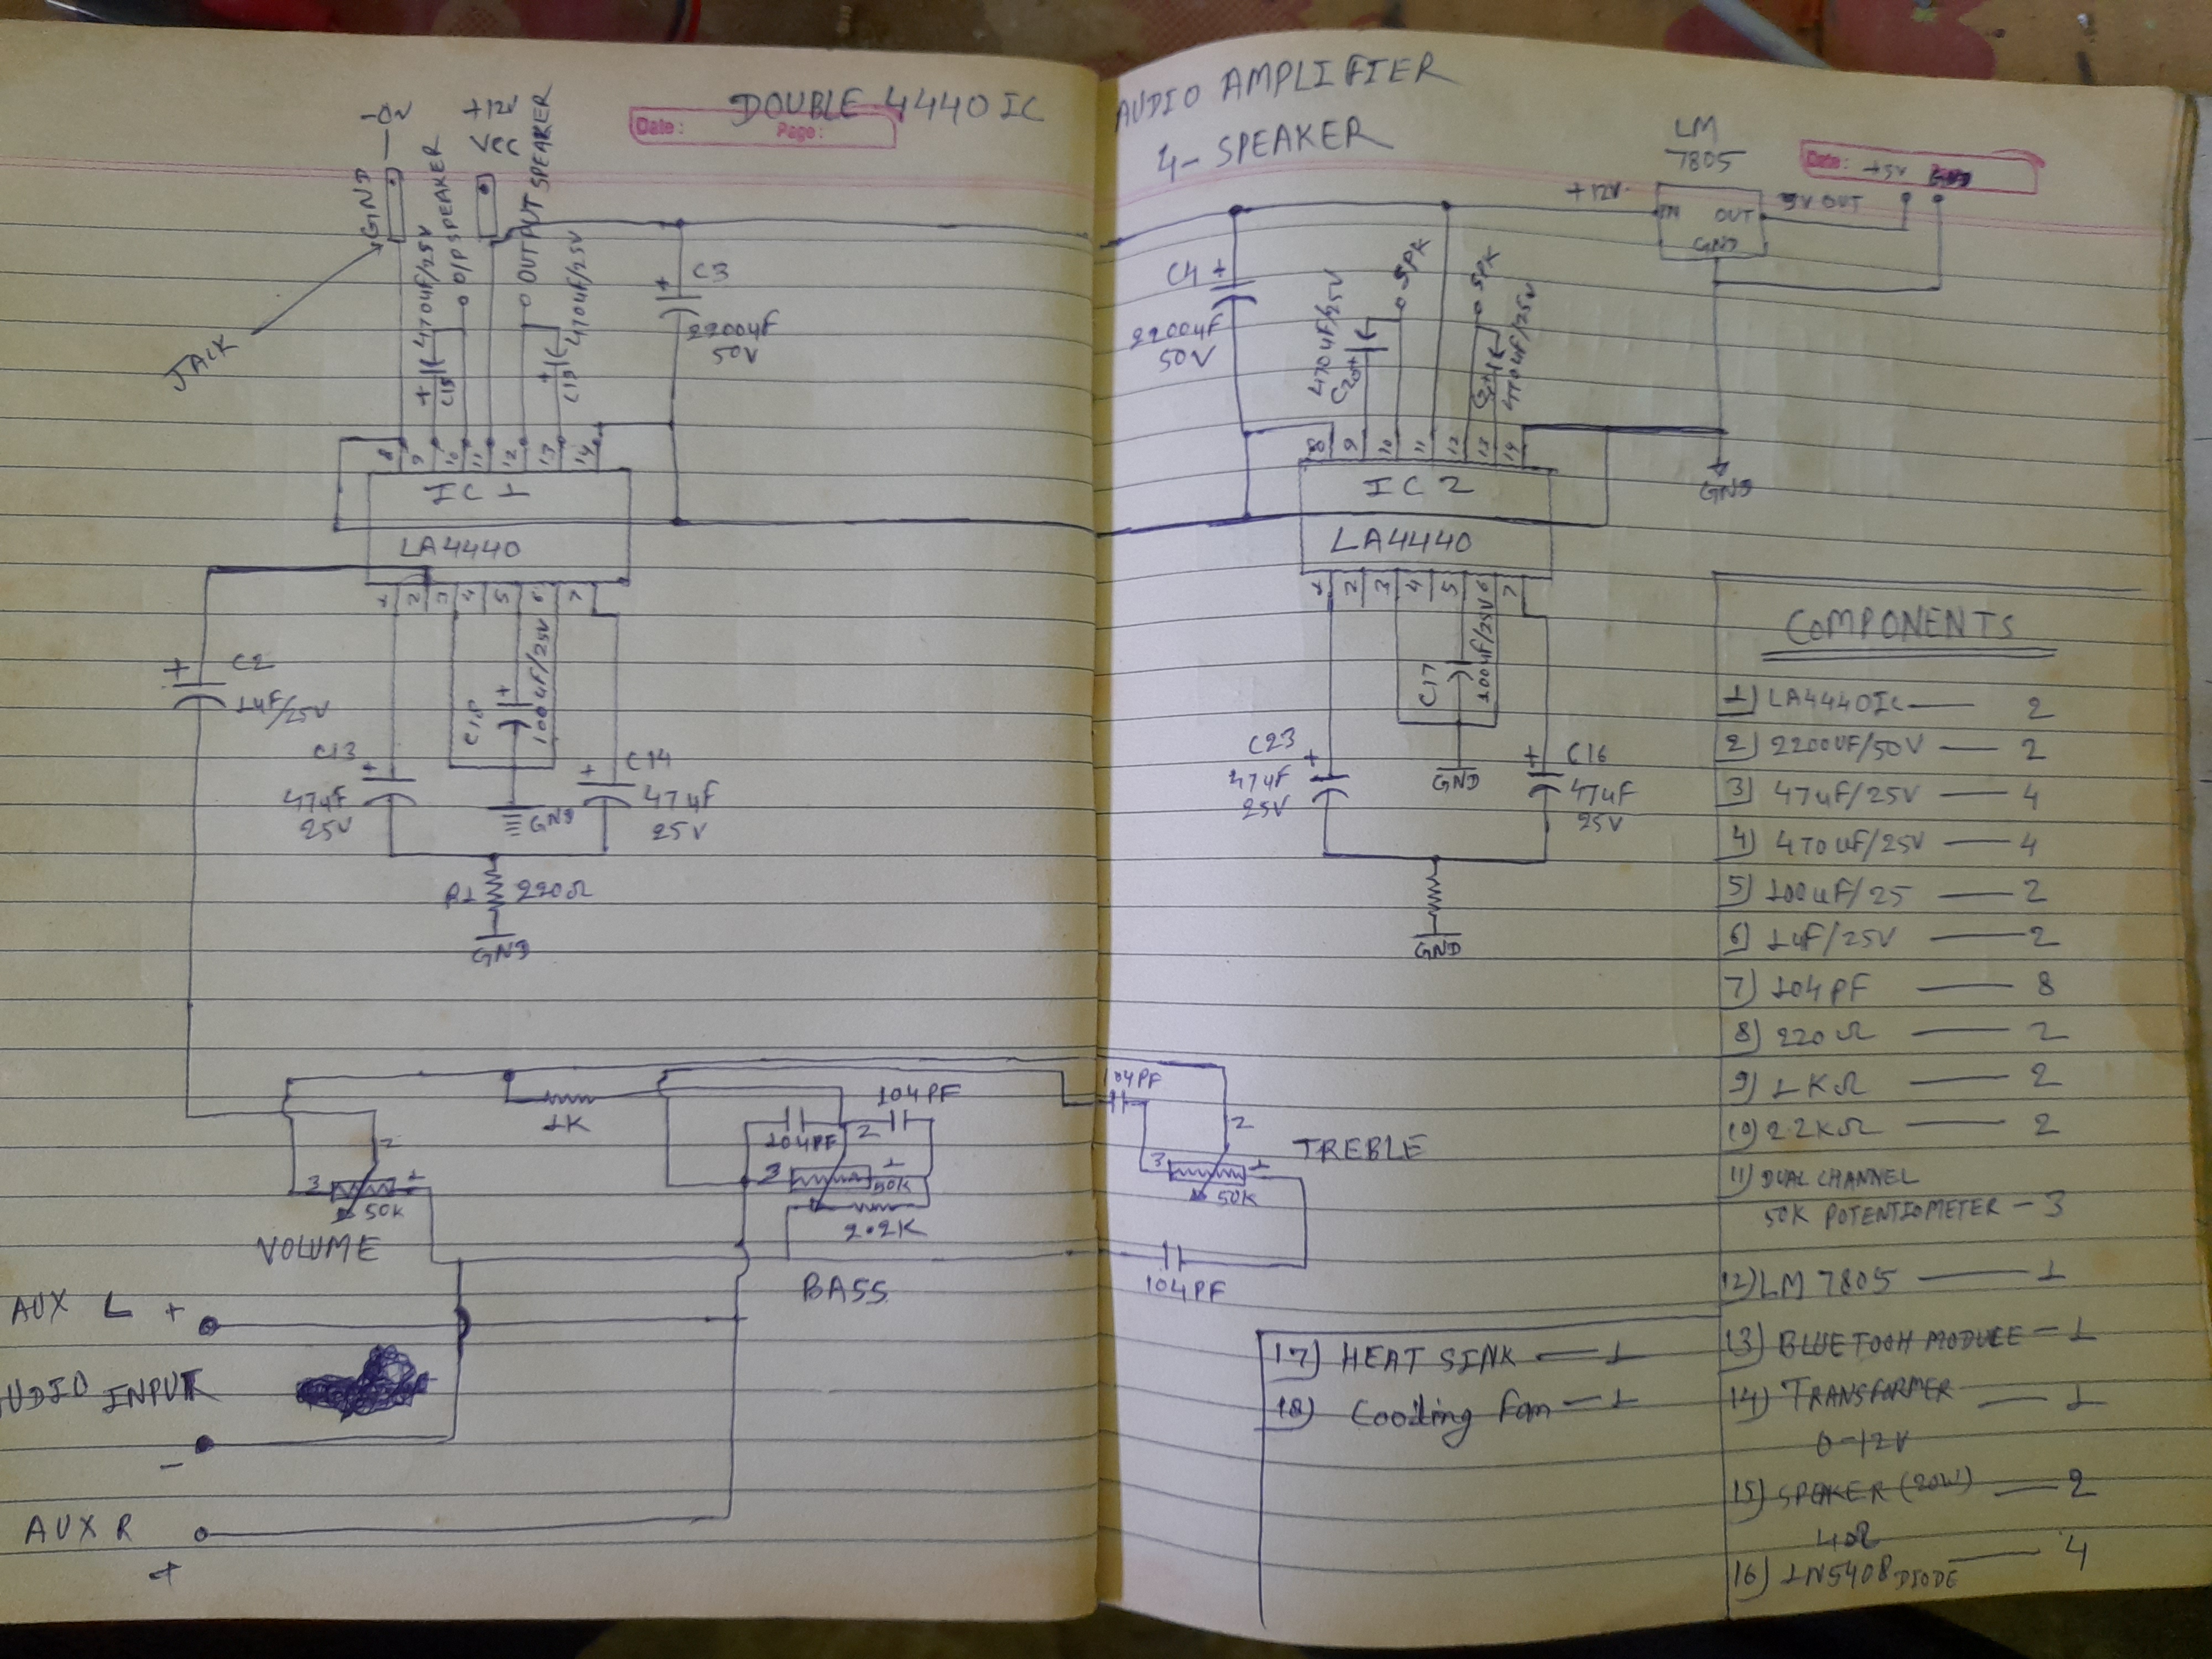 DOUBLE 4440 IC AUDIO AMPLIFIER
4- SPEAKER
Date :
Page :
Date :
-0V
GND
JACK
470uF/25V
O/P SPEAKER
+12V
VCC
OUTPUT SPEAKER
470uF/25V
+ C15
+ C19
+ C3
2200uF
50V
8 9 10 11 12 13 14
IC 1
LA4440
1 2 3 4 5 6 7
+ C2
1uF/25V
C13
+
47uF
25V
C18
+
100uF/25V
GND
+ C14
47uF
25V
R1 220Ω
GND
LM
7805
+12V
IN OUT
GND
5V OUT
+5V
C4 +
2200uF
50V
470uF/25V
SPK
SPK
470uF/25V
8 9 10 11 12 13 14
IC 2
LA4440
GND
1 2 3 4 5 6 7
C17
100uF/25V
GND
C23
+
47uF
25V
+ C16
47uF
25V
GND
1K
104PF
104PF
2
3 1
50K
2.2K
BASS
2
3 1
50K
VOLUME
104PF
2
3 1
50K
TREBLE
104PF
AUX L +
UDIO INPUT
-
AUX R
+
COMPONENTS
1) LA4440IC — 2
2) 2200UF/50V — 2
3) 47uF/25V — 4
4) 470uF/25V — 4
5) 100uF/25 — 2
6) 1uF/25V — 2
7) 104PF — 8
8) 220Ω — 2
9) 1KΩ — 2
10) 2.2KΩ — 2
11) DUAL CHANNEL
50K POTENTIOMETER - 3
12) LM 7805 — 1
13) BLUETOOH MODULE - 1
14) TRANSFORMER — 1
0-12V
15) SPEKER (20W) — 2
4Ω
16) 1N5408 DIODE — 4
17) HEAT SINK — 1
18) Cooling fan - 1